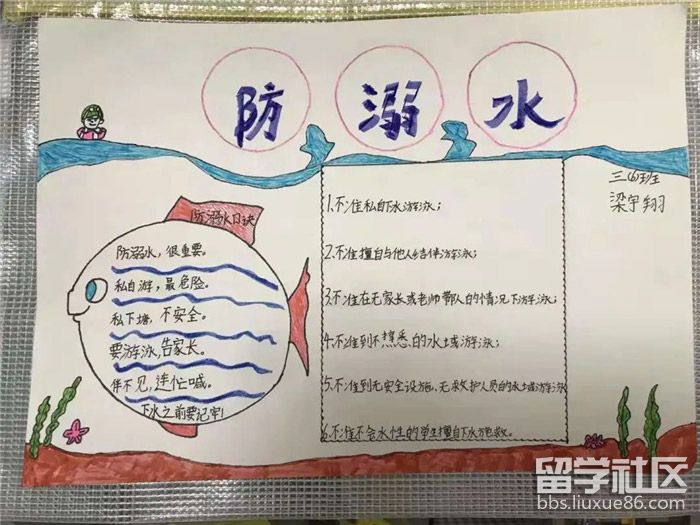 防溺水
三(6)班
梁宇翔
防溺水口诀
防溺水，很重要。
私自游，最危险。
私下塘，不安全。
要游泳，告家长。
伴不见，连忙喊。
下水之前要记牢！
1.不准私自下水游泳；
2.不准擅自与他人结伴游泳；
3.不准在无家长或老师带队的情况下游泳；
4.不准到不熟悉的水土或游泳；
5.不准到无安全设施、无救护人员的水土或游泳
6.不准不会水性的学生擅自下水施救。
留学社区
bbs.liuxue86.com